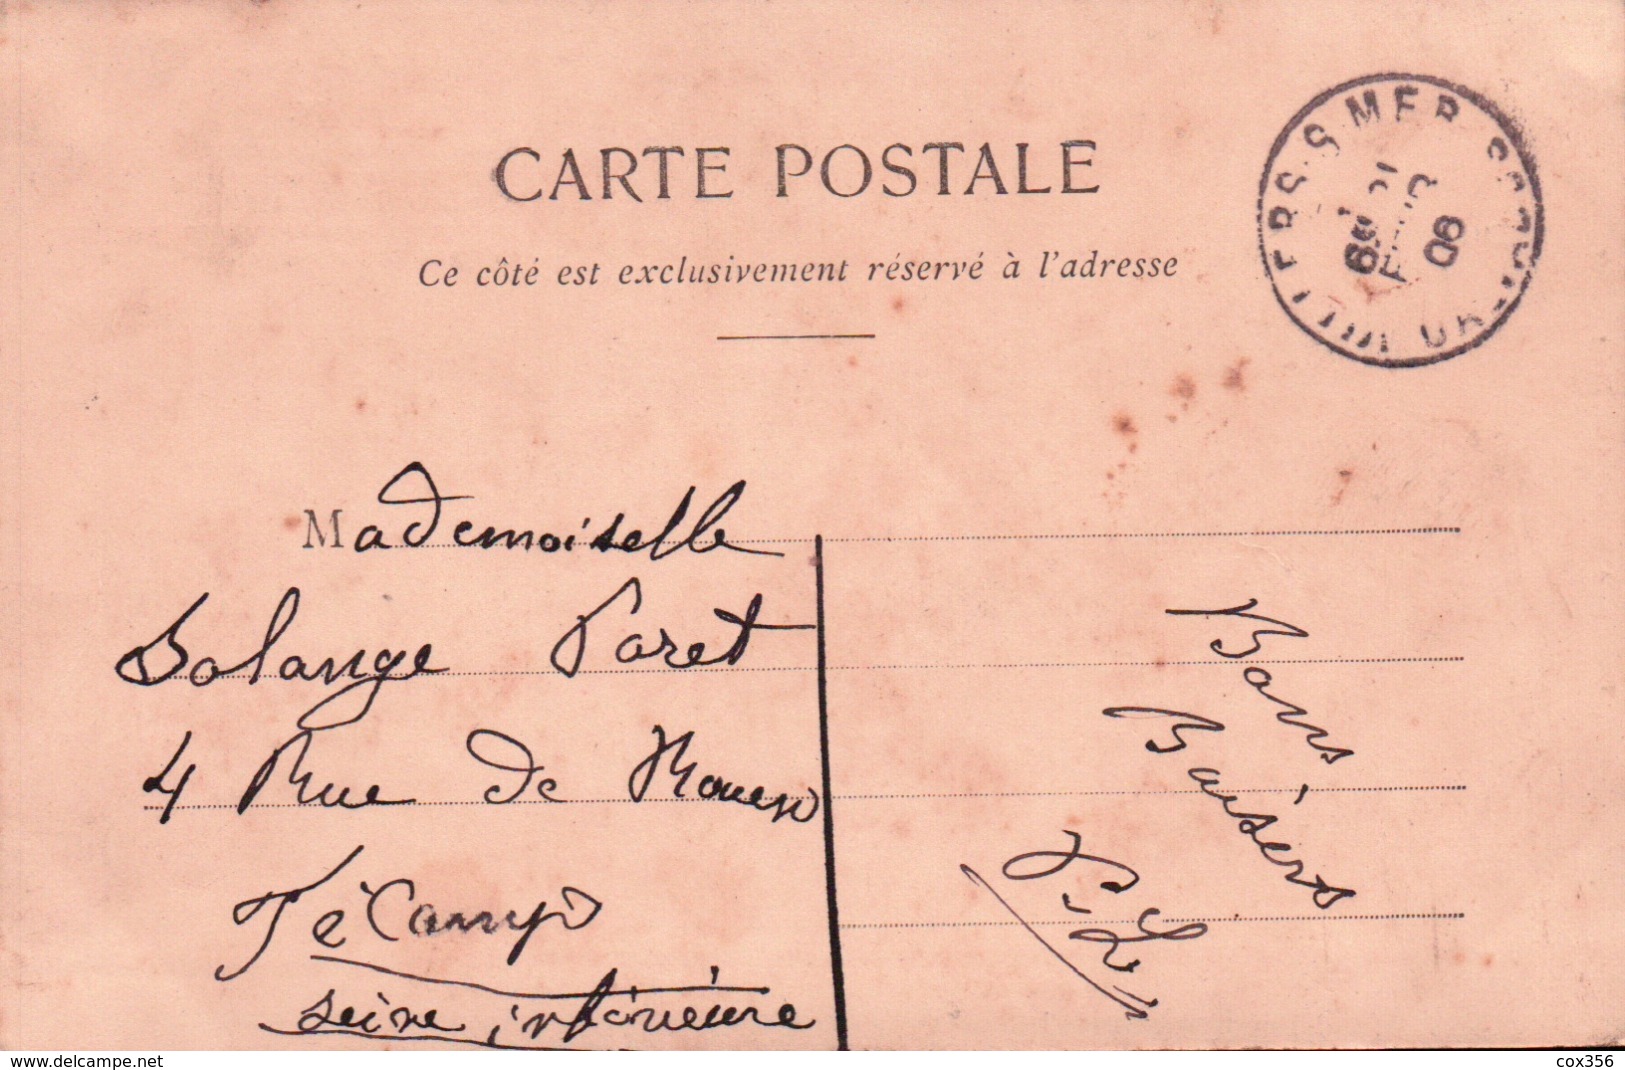 CARTE POSTALE
Ce côté est exclusivement réservé à l'adresse
S MER
06
Mademoiselle
Solange Paret
4 Rue de Rouen
Fécamp
seine inférieure
Bons
Baisers
delcampe.net
cox356